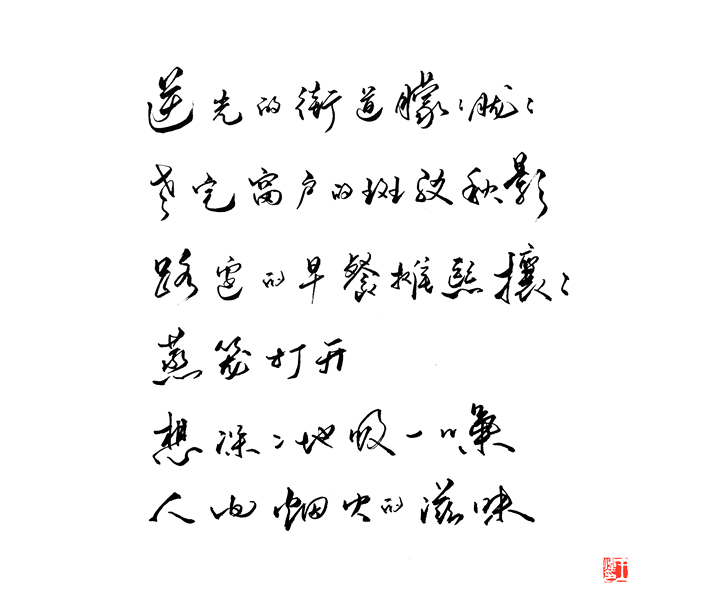 逆光的街道朦〻胧〻
老宅窗户的斑驳秋影
路边的早餐摊熙攘〻
蒸笼打开
想深〻地吸一口氣
人间烟火的滋味